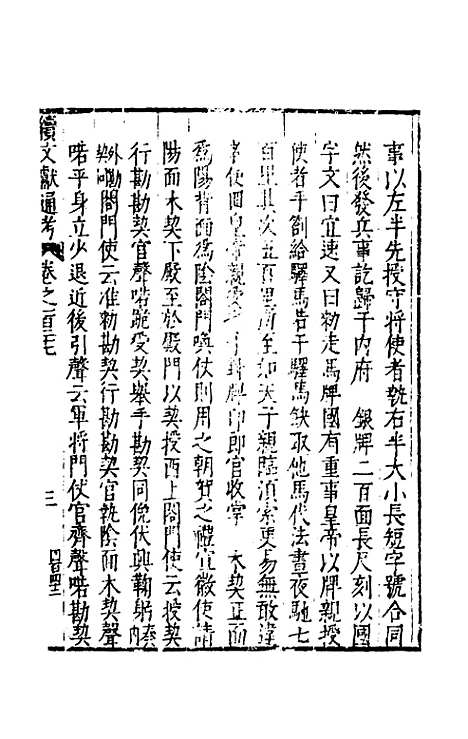 事以左半先授守將使者執右半大小長短字號合同
然後發兵事訖歸于內府　銀牌二百面長尺刻以國
字文曰宜速又曰勑走馬牌國有重事皇帝以牌親授
使者手劄給驛馬若干驛馬缺取他馬代法晝夜馳七
百里其次五百里所至如天子親臨須索更易無敢違
者使回皇帝親受之手封牌印郎官收掌　木契正面
爲陽背面爲陰閤門喚仗則用之朝賀之禮宣徽使請
陽面木契下殿至於殿門以契授西上閤門使云授契
行勘勘契官聲喏跪受契舉手勘契同俛伏興鞠躬奏內
外勘契同閤門使云准勑勘契行勘勘契官執陰面木契聲
喏平身立少退近後引聲云軍將門仗官齊聲喏勘契
續文獻通考　卷之一百三七　三